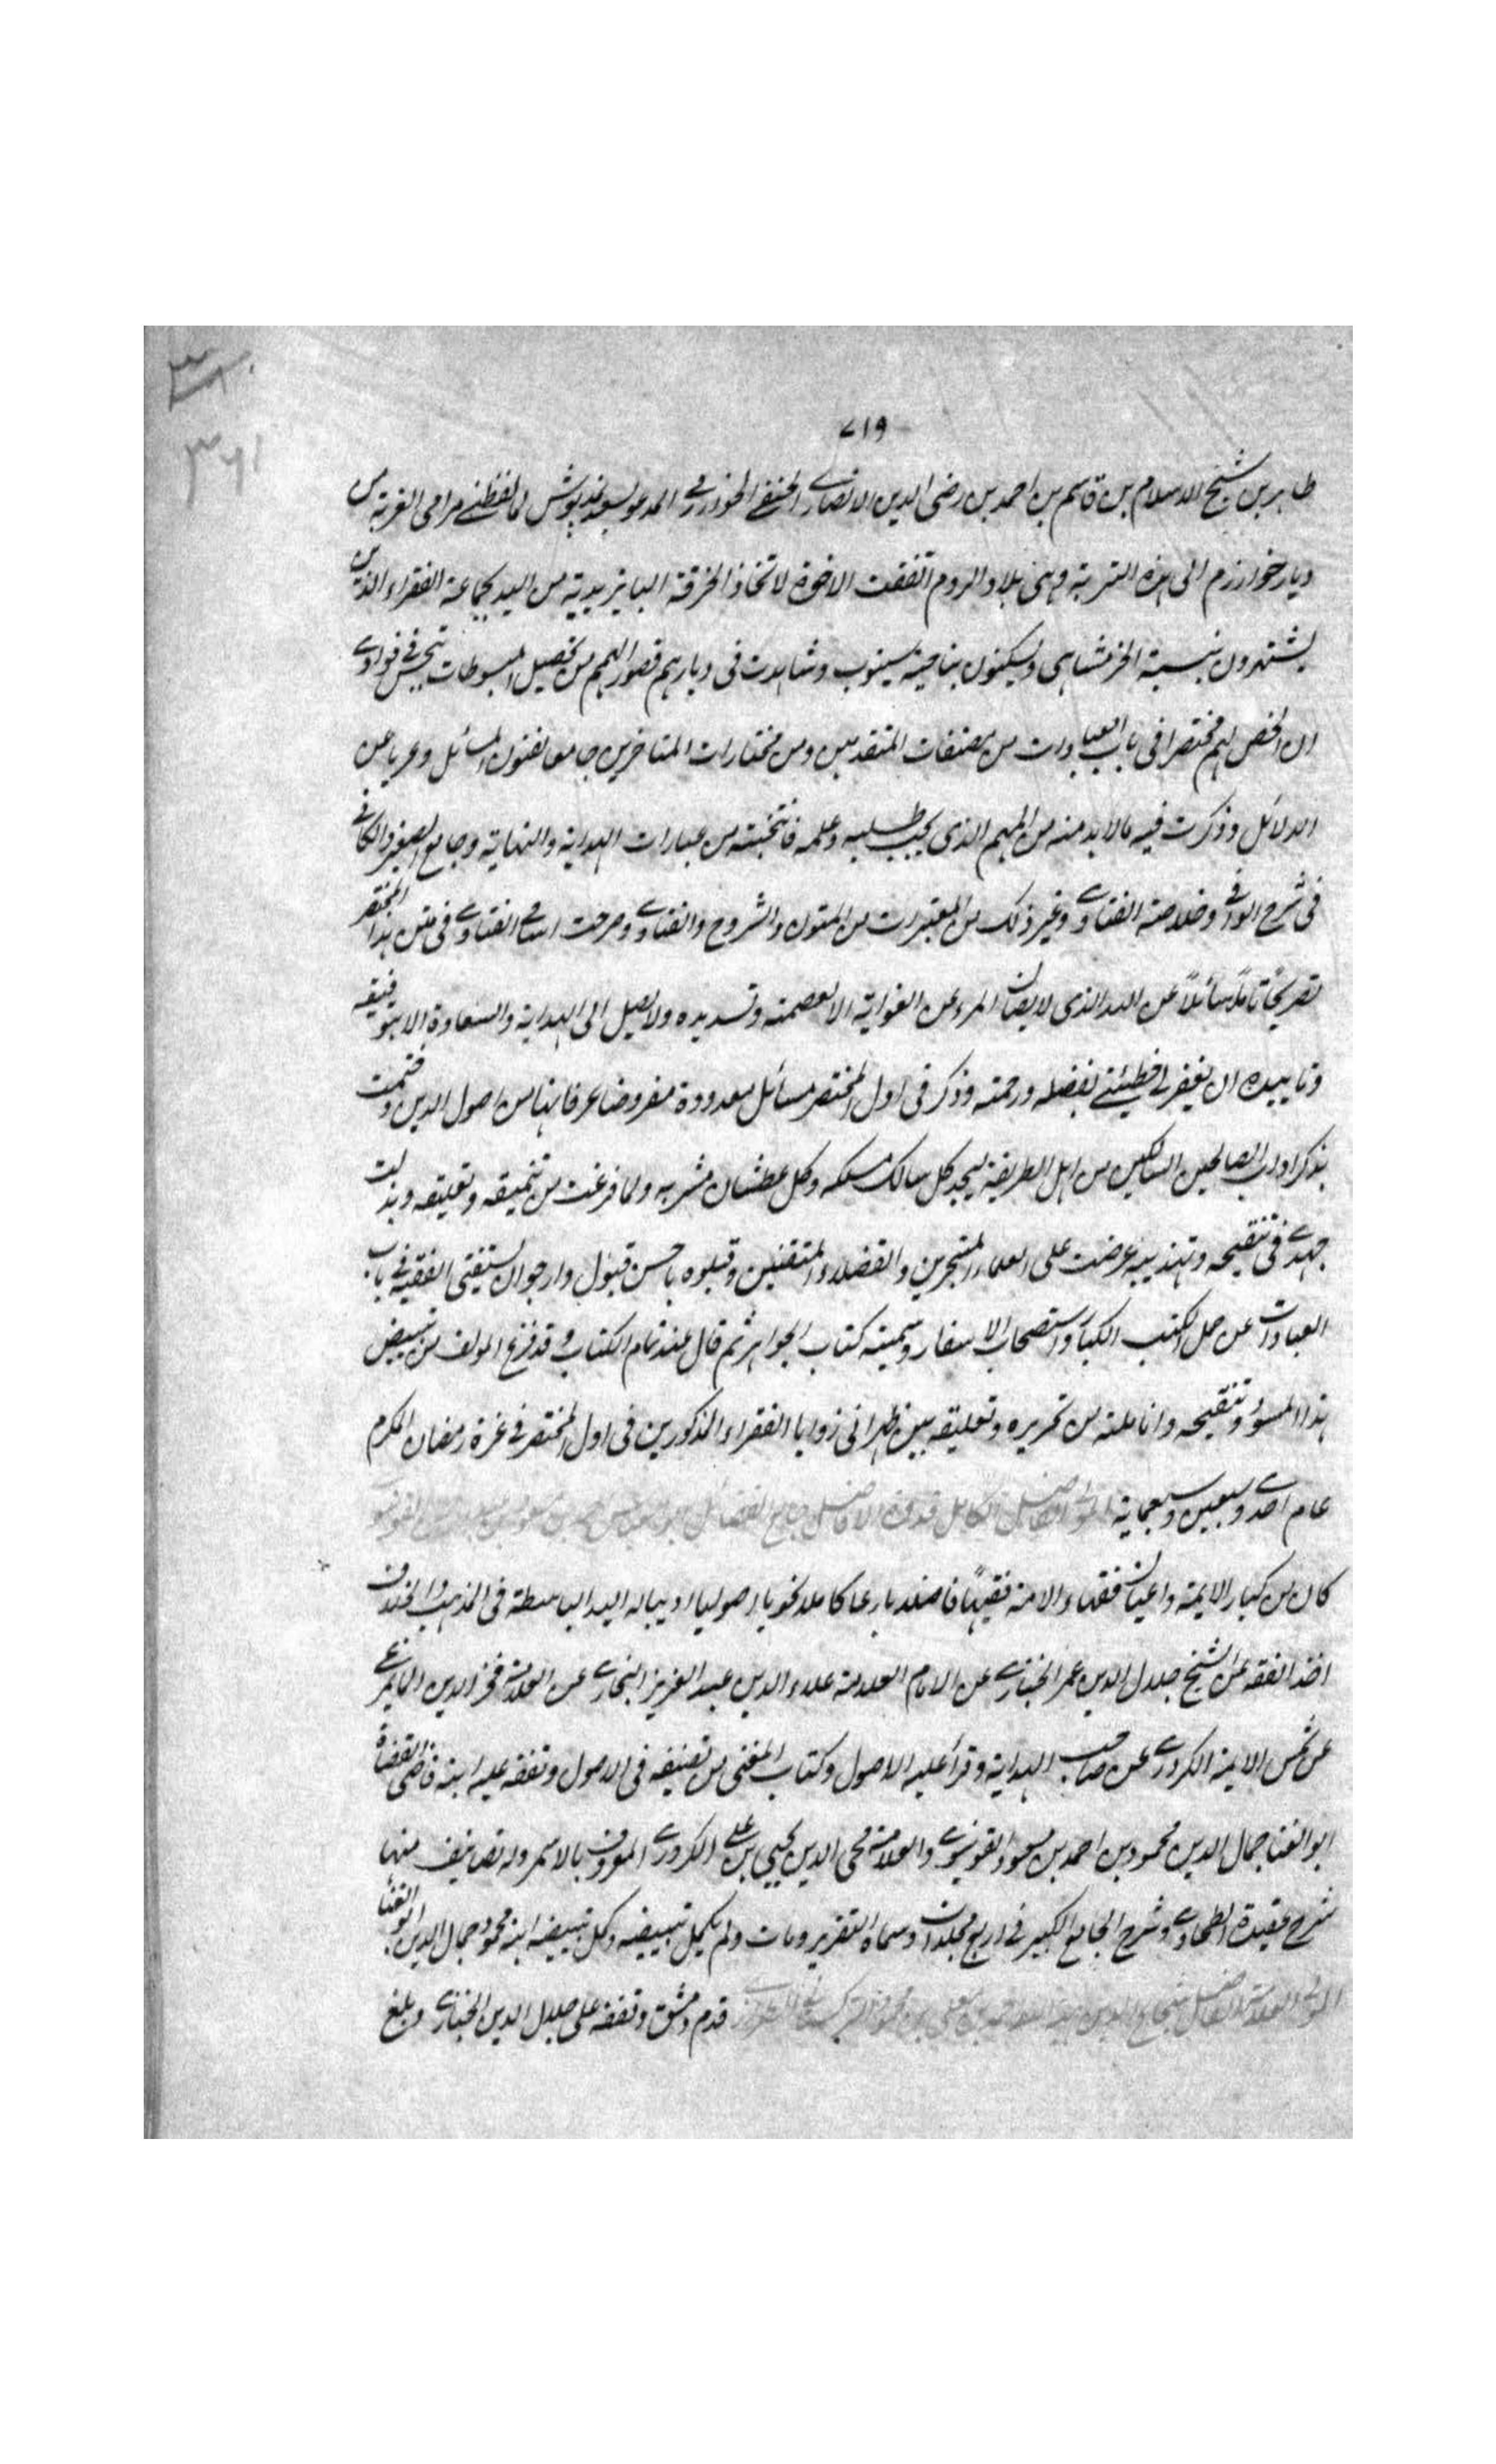 ٧١٩
طاهر بن شيخ الاسلام بن قاسم بن احمد بن رضى الدين الانصارى الحنفى الخوارزمى المدعو بسعد نمدپوش لما لفظنى مرامى الغربة من
ديار خوارزم الى هذه التربة وهى بلاد الروم اتفقت الاخوة لاتخاذ الخرقة البايزيدية من اليد بجماعة الفقراء الذين
يشتهرون بنسبة الخرمشاهى ويسكنون بناحية سينوب وشاهدت فى ديارهم قصور الهمم من تحصيل المبسوطات فى فوادى
ان الخص لهم مختصرا فى باب العبادات من مصنفات المتقدمين ومن مختارات المتاخرين جامعا لفنون المسائل وعريا عن
الدلائل وذكرت فيه ما لا بد منه من المهم الذى يجب طلبه وعلمه فانتخبته من عبارات الهداية والنهاية وجامع الصغير والكافى
فى شرح الوافى وخلاصة الفتاوى وغير ذلك من المعتبرات من المتون والشروح والفتاوى وصرحت اسامى الفتاوى فى متن هذا المختصر
تصريحا تاما سائلا عن الله الذى لا يصان المرء عن الغواية الا بعصمته وتسديده ولا يصل الى الهداية والسعادة الا بتوفيقه
وتاييده ان يغفر لى خطيئتى بفضله ورحمته وذكر فى اول المختصر مسائل معدودة مفروضا عرفانها من اصول الدين وختمت
بذكر اداب الصالحين السالكين من اهل الطريقة ليجد كل سالك مسلكه وكل عطشان مشربه ولما فرغت من تنميقه وتعليقه وبذلت
جهدى فى تنقيحه وتهذيبه عرضت على العلماء المتبحرين والفضلاء المتقنين وقبلوه باحسن قبول وارجو ان يستغنى الفقيه فى باب
العبادات عن حمل الكتب الكبار واستصحاب الاسفار وسميته كتاب الجواهر ثم قال عند تمام الكتاب وقد فرغ المولف من تبييض
هذا المسود وتنقيحه وانامله من تحريره وتعليقه بين ظهرانى زوايا الفقراء المذكورين فى اول المختصر فى غرة رمضان المكرم
عام احدى وسبعين وسبعماية المولى الفاضل الكامل قدوة الافاضل جامع الفضائل احمد بن مسعود القونوى
كان من كبار الايمة واعيان فقهاء الامة فقيها فاضلا بارعا كاملا نحويا اصوليا اديبا له اليد الباسطة فى المذهب والخلاف
اخذ الفقه عن الشيخ جلال الدين عمر الخبازى عن الامام العلامة علاء الدين عبد العزيز البخارى عن العلامة فخر الدين المايمرغى
عن شمس الايمة الكردرى عن صاحب الهداية وقرأ عليه الاصول وكتاب المغنى من تصنيفه فى الاصول وتفقه عليه ابنه قاضى القضاة
ابو الثنا جمال الدين محمود بن احمد بن مسعود القونوى والعلامة محى الدين يحيى بن على الكردرى المعروف بالاسمر وله تصانيف منها
شرح عقيدة الطحاوى وشرح الجامع الكبير فى اربع مجلدات وسماه التقرير ومات ولم يكمل تبييضه وكمل تبييضه ابنه محمود جمال الدين ابو الثنا
المولى العلامة الفاضل شجاع الدين هبة الله بن احمد بن معلى بن محمود التركستانى الطرازى قدم دمشق وتفقه على جلال الدين الخبازى وبلغ